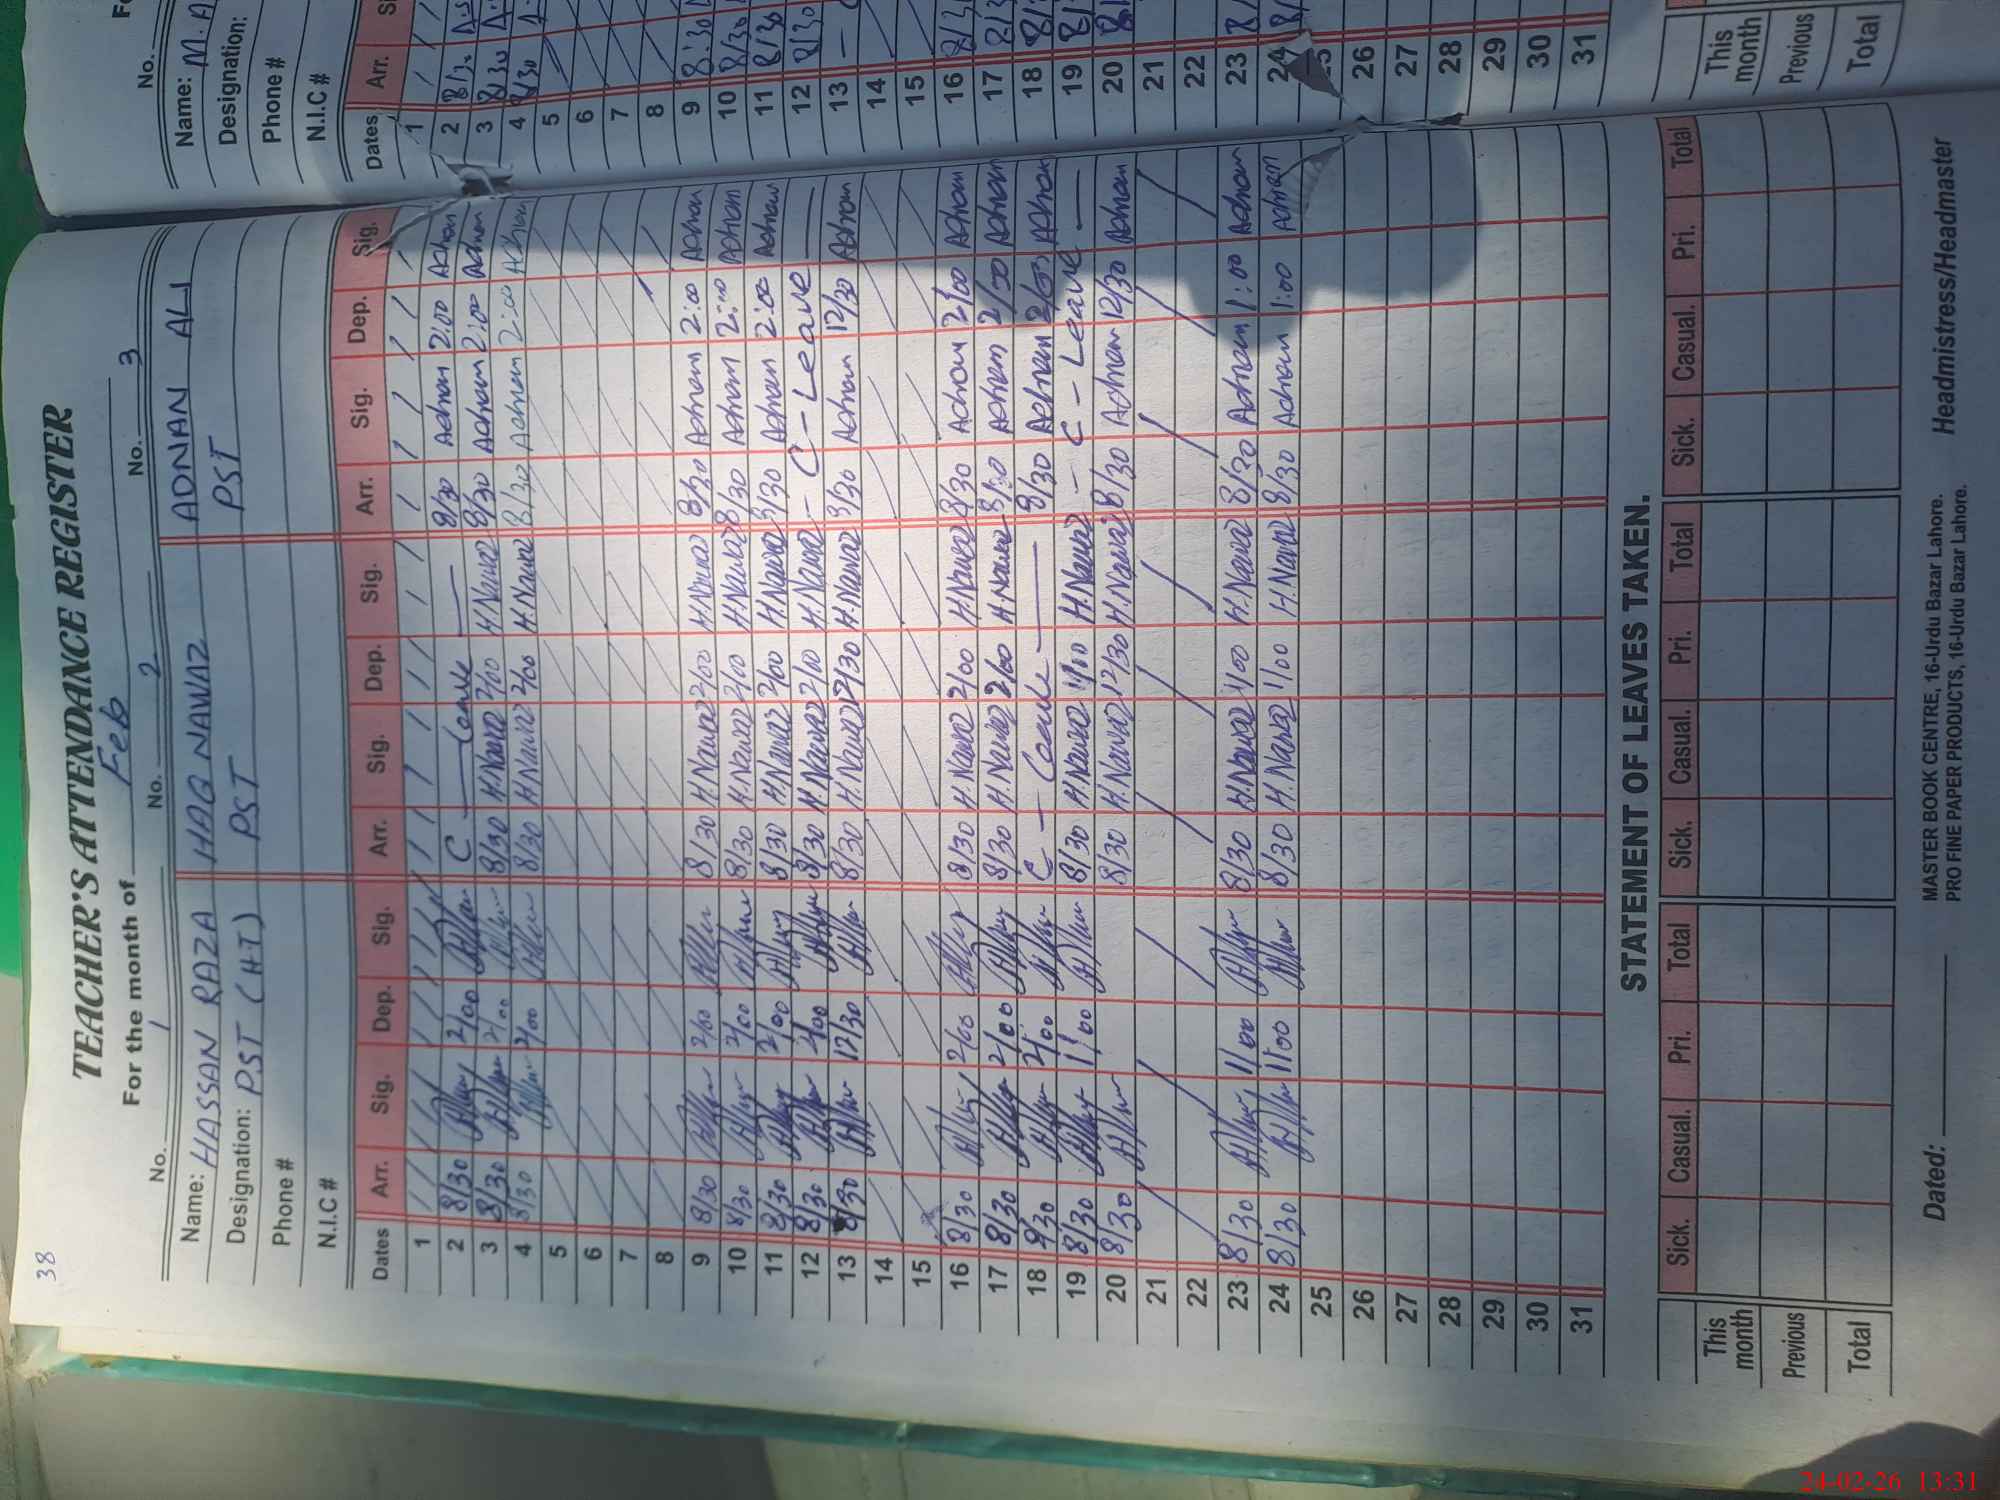 38
TEACHER'S ATTENDANCE REGISTER
For the month of Feb
No. 1 No. 2 No. 3
Name: HASSAN RAZA HAQ NAWAZ ADNAN ALI
Designation: PST (H.T) PST PST
Phone #
N.I.C #
Dates Arr. Sig. Dep. Sig. Arr. Sig. Dep. Sig. Arr. Sig. Dep. Sig.
1
2 8/30 2/00 C Leave 8/30 Adnan 2:00 Adnan
3 8/30 2/00 8/30 H.Nawaz 2/00 H.Nawaz 8/30 Adnan 2:00 Adnan
4 8/30 2/00 8/30 H.Nawaz 2/00 H.Nawaz 8/30 Adnan 2:00 Adnan
5
6
7
8
9 8/30 2/00 8/30 H.Nawaz 2/00 H.Nawaz 8/30 Adnan 2:00 Adnan
10 8/30 2/00 8/30 H.Nawaz 2/00 H.Nawaz 8/30 Adnan 2:00 Adnan
11 8/30 2/00 8/30 H.Nawaz 2/00 H.Nawaz 8/30 Adnan 2:00 Adnan
12 8/30 2/00 8/30 H.Nawaz 2/00 H.Nawaz - C - Leave
13 8/30 12/30 8/30 H.Nawaz 12/30 H.Nawaz 8/30 Adnan 12/30 Adnan
14
15
16 8/30 2/00 8/30 H.Nawaz 2/00 H.Nawaz 8/30 Adnan 2/00 Adnan
17 8/30 2/00 8/30 H.Nawaz 2/00 H.Nawaz 8/30 Adnan 2/00 Adnan
18 8/30 2/00 C - Leave 8/30 Adnan 2/00 Adnan
19 8/30 1/00 8/30 H.Nawaz 1/00 H.Nawaz - C - Leave
20 8/30 8/30 H.Nawaz 12/30 H.Nawaz 8/30 Adnan 12/30 Adnan
21
22
23 8/30 1/00 8/30 H.Nawaz 1/00 H.Nawaz 8/30 Adnan 1:00 Adnan
24 8/30 1/00 8/30 H.Nawaz 1/00 H.Nawaz 8/30 Adnan 1:00 Adnan
25
26
27
28
29
30
31
STATEMENT OF LEAVES TAKEN.
Sick. Casual. Pri. Total Sick. Casual. Pri. Total Sick. Casual. Pri. Total
This month
Previous
Total
Dated: MASTER BOOK CENTRE, 16-Urdu Bazar Lahore.
PRO FINE PAPER PRODUCTS, 16-Urdu Bazar Lahore.
Headmistress/Headmaster
No.
Name: M.A
Designation:
Phone #
N.I.C #
Dates Arr.
1
2 8/30
3 8/30
4 8/30
5
6
7
8
9 8:30
10 8/30
11 8/30
12 8/30
13
14
15
16
17
18
19
20
21
22
23
24
25
26
27
28
29
30
31
This month
Previous
Total
24-02-26 13:31